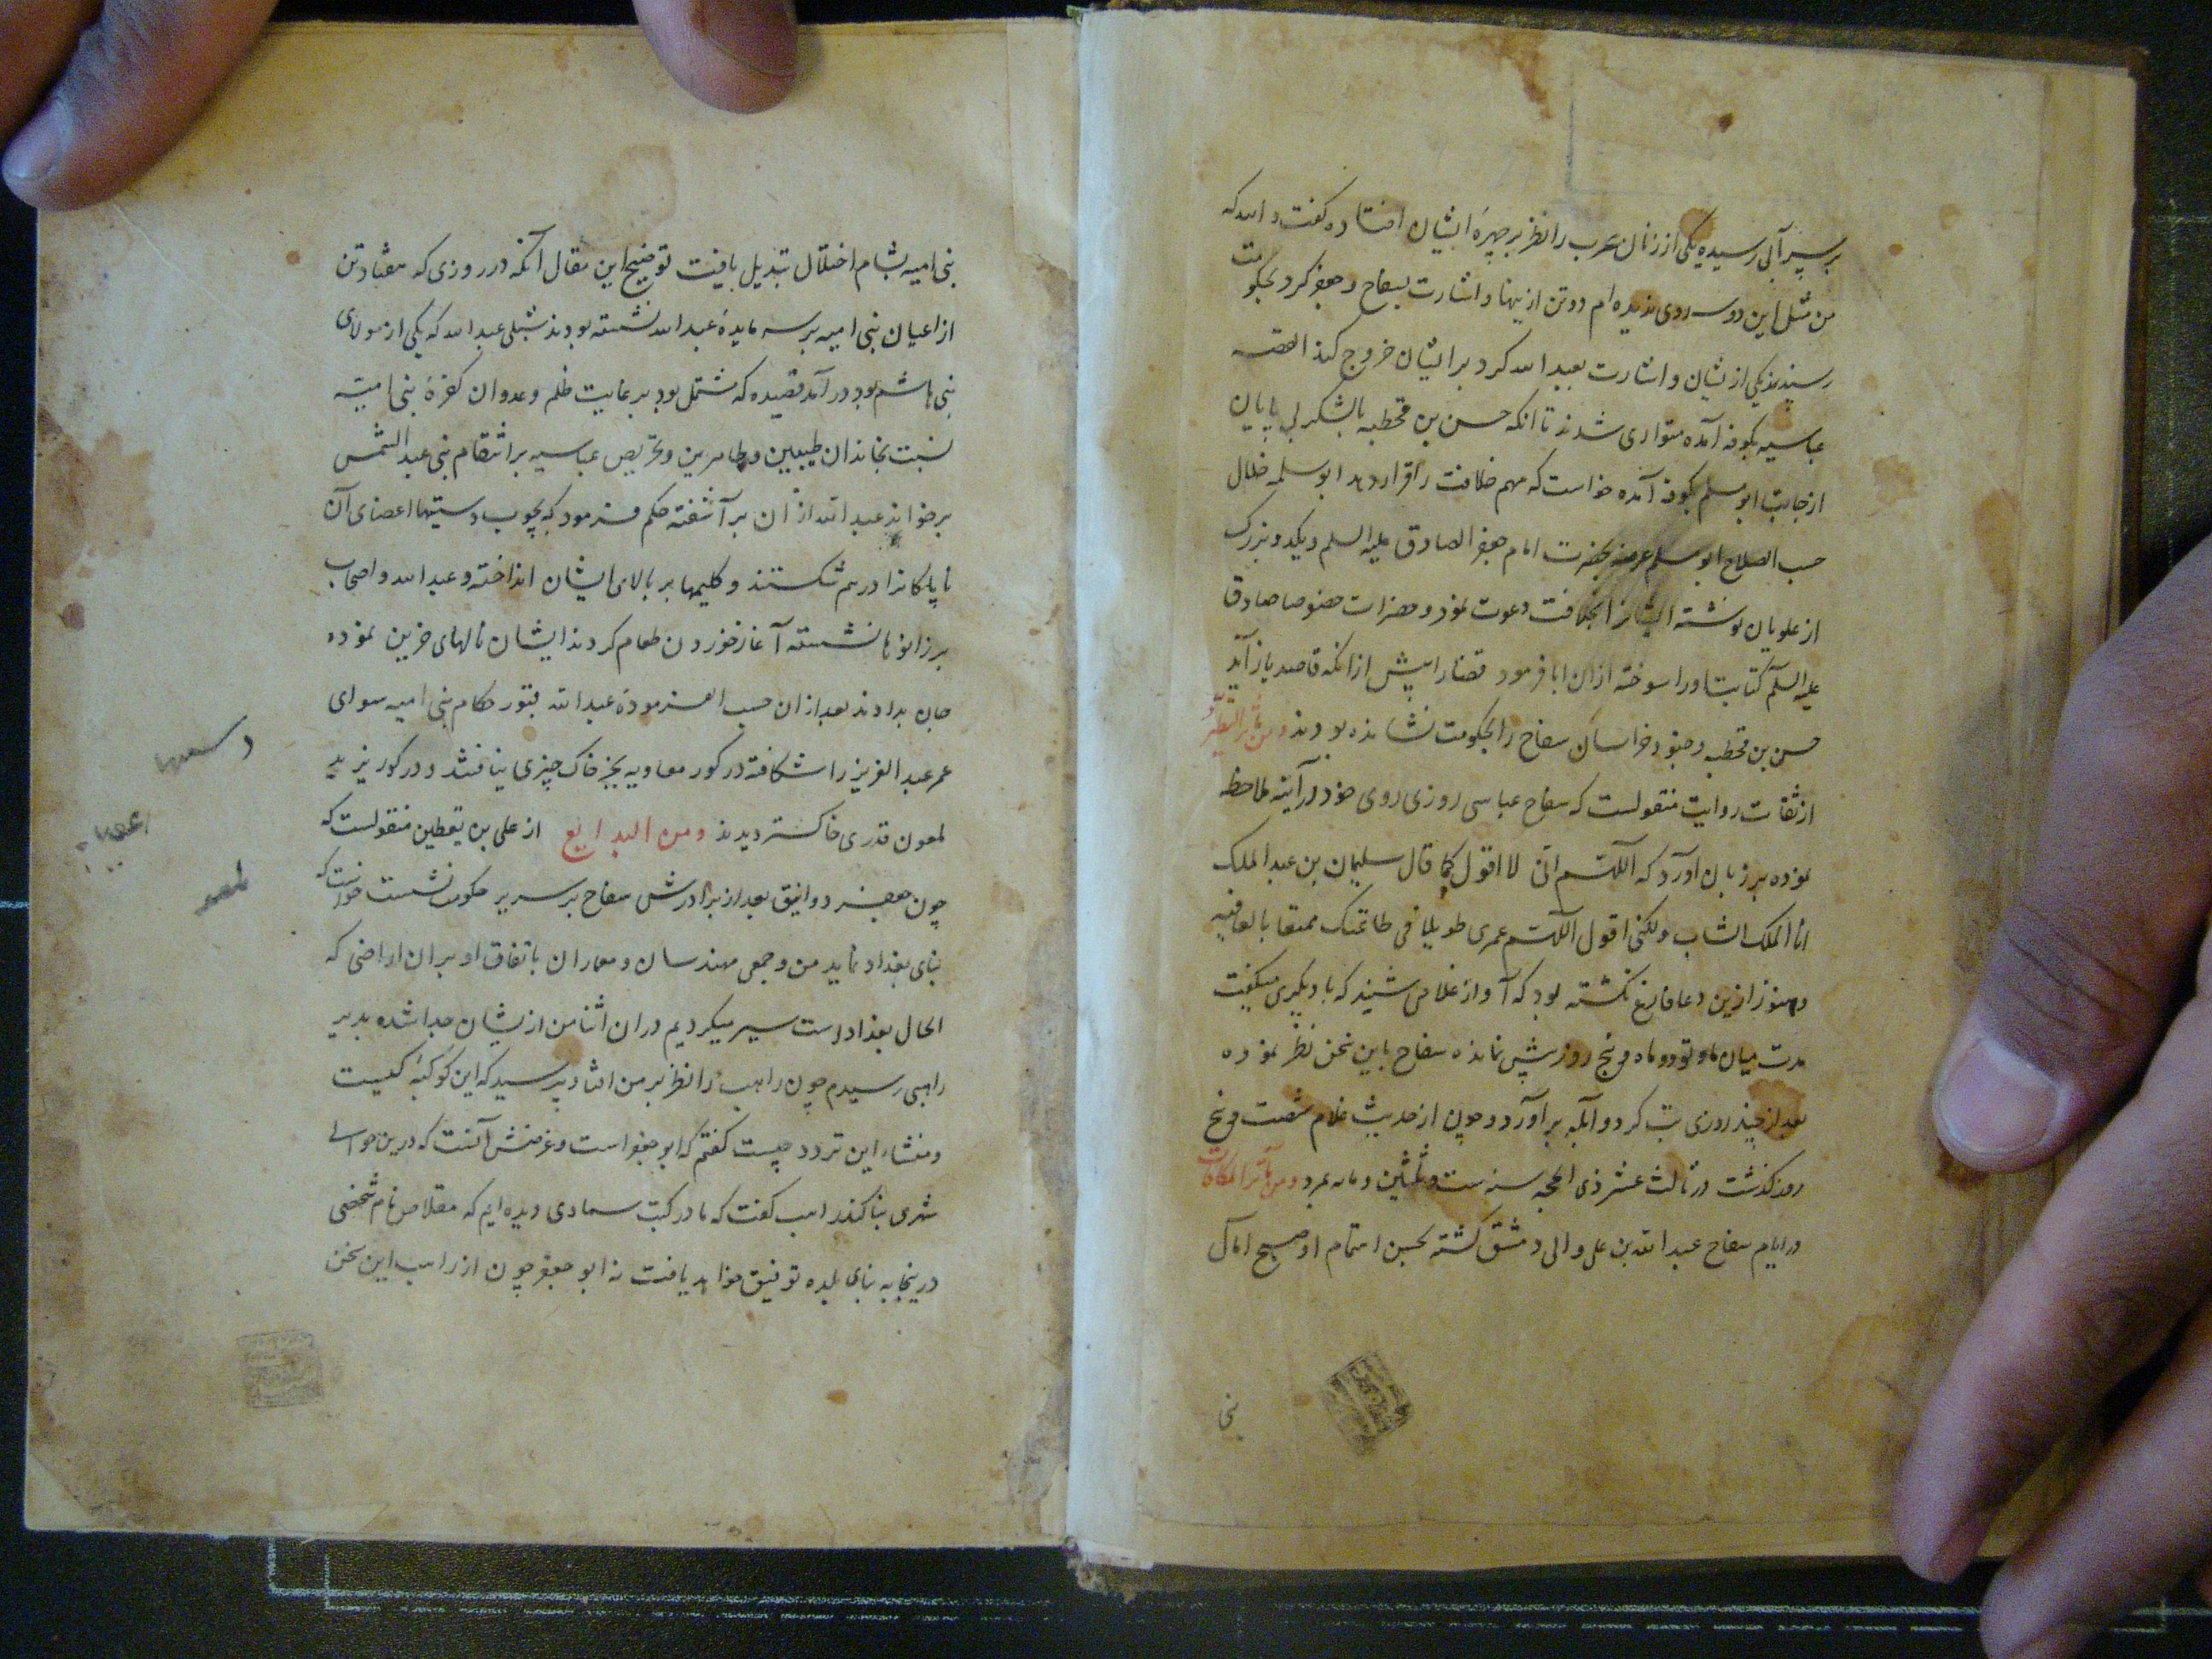 بر سر آبی رسیده یکی از زنان عرب را نظر بر چهرهٔ ایشان افتاده گفت و الله که
من مثل این دو سه روی ندیده ام دو تن ازینها و اشارت بسفاح و جعفر کرد بحکومت
رسیدند یکی از یشان و اشارت بعبد الله کرد بر ایشان خروج کند القصه
عباسیه بکوفه آمده متواری شدند تا انکه حسن بن قحطبه با لشکر بی پایان
از جانب ابو مسلم بکوفه آمده خواست که مهم خلافت را قرار دهد ابو سلمه خلال
حسب الصلاح ابو مسلم عرضه بحضرت امام جعفر الصادق علیه السلم و یکد و بزرک
از علویان نوشته ایشانرا بخلافت دعوت نمود و حضرات خصوصا صادق
علیه السلم کتابت او را سوخته از ان ابا فرمود قضا را پیش از انکه قاصد باز آید
حسن بن قحطبه و جنود خراسان سفاح را بحکومت نشانده بودند و من
از ثقات روایت منقولست که سفاح عباسی روزی روی خود در آینه ملاحظه
نموده بر زبان آورد که اللهم انی لا اقول کما قال سلیمان بن عبد الملک
انا الملک الشاب ولکنی اقول اللهم عمری طویلا فی طاعتک ممتعا بالعافیه
و هنوز ازین دعا فارغ نکشته بود که آواز غلامی شنید که با دیکری میکفت
مدت میان ما و تو دو ماه و پنج روز پیش نمانده سفاح باین سخن نظر نموده
بعد از چند روزی تب کرد و آبله بر آورد و چون از حدیث غلام شصت و پنج
روز کذشت در ثالث عشر ذی الحجه سنه ست و ثلثین و مائه بمرد و من مآثر المکافات
در ایام سفاح عبد الله بن علی والی دمشق کشته بحسن اهتمام او صبح آمال
بنی
بنی امیه بشام اختلال تبدیل یافت توضیح این مقال آنکه در روزی که هفتاد تن
از اعیان بنی امیه بر سر مایدهٔ عبد الله نشسته بودند شبلی عبد الله که یکی از مولای
بنی هاشم بود در آمد قصیده که مشتمل بود بر غایت ظلم و عدوان کفرهٔ بنی امیه
نسبت بخاندان طیبین و طاهرین و تحریص عباسیه بر انتقام بنی عبد الشمس
بر خواند عبد الله از ان بر آشفته حکم فرمود که بچوب دستیها اعضای آن
ناپاکانرا در هم شکستند و کلیمها بر بالای ایشان انداخته و عبد الله و اصحاب
بر زانوها نشسته آغاز خوردن طعام کردند ایشان نالهای حزین نموده
جان بدادند بعد از ان حسب الفرمودهٔ عبد الله قبور حکام بنی امیه سوای
عمر عبد العزیز را شکافته در کور معاویه بجز خاک چیزی نیافتند و در کور یزید
ملعون قدری خاکستر دیدند و من البدایع از علی بن یقطین منقولست که
چون جعفر دوانیق بعد از برادرش سفاح بر سریر حکومت نشست خواست که
بنای بغداد نماید من و جمعی مهندسان و معماران باتفاق او بر ان اراضی که
الحال بغداد است سیر میکردیم در ان اثنا من از یشان جدا شده بدیر
راهبی رسیدم چون راهب را نظر بر من افتاد پرسید که این کوکبه کیست
و منشاء این تردد چیست کفتم که ابو جعفر است و غرضش آنست که درین حوالی
شهری بنا کند راهب کفت که ما در کتب سماوی دیده ایم که مقلاص نام شخصی
درینجا به بنای بلده توفیق خواهد یافت نه ابو جعفر چون از راهب این سخن
دستیها